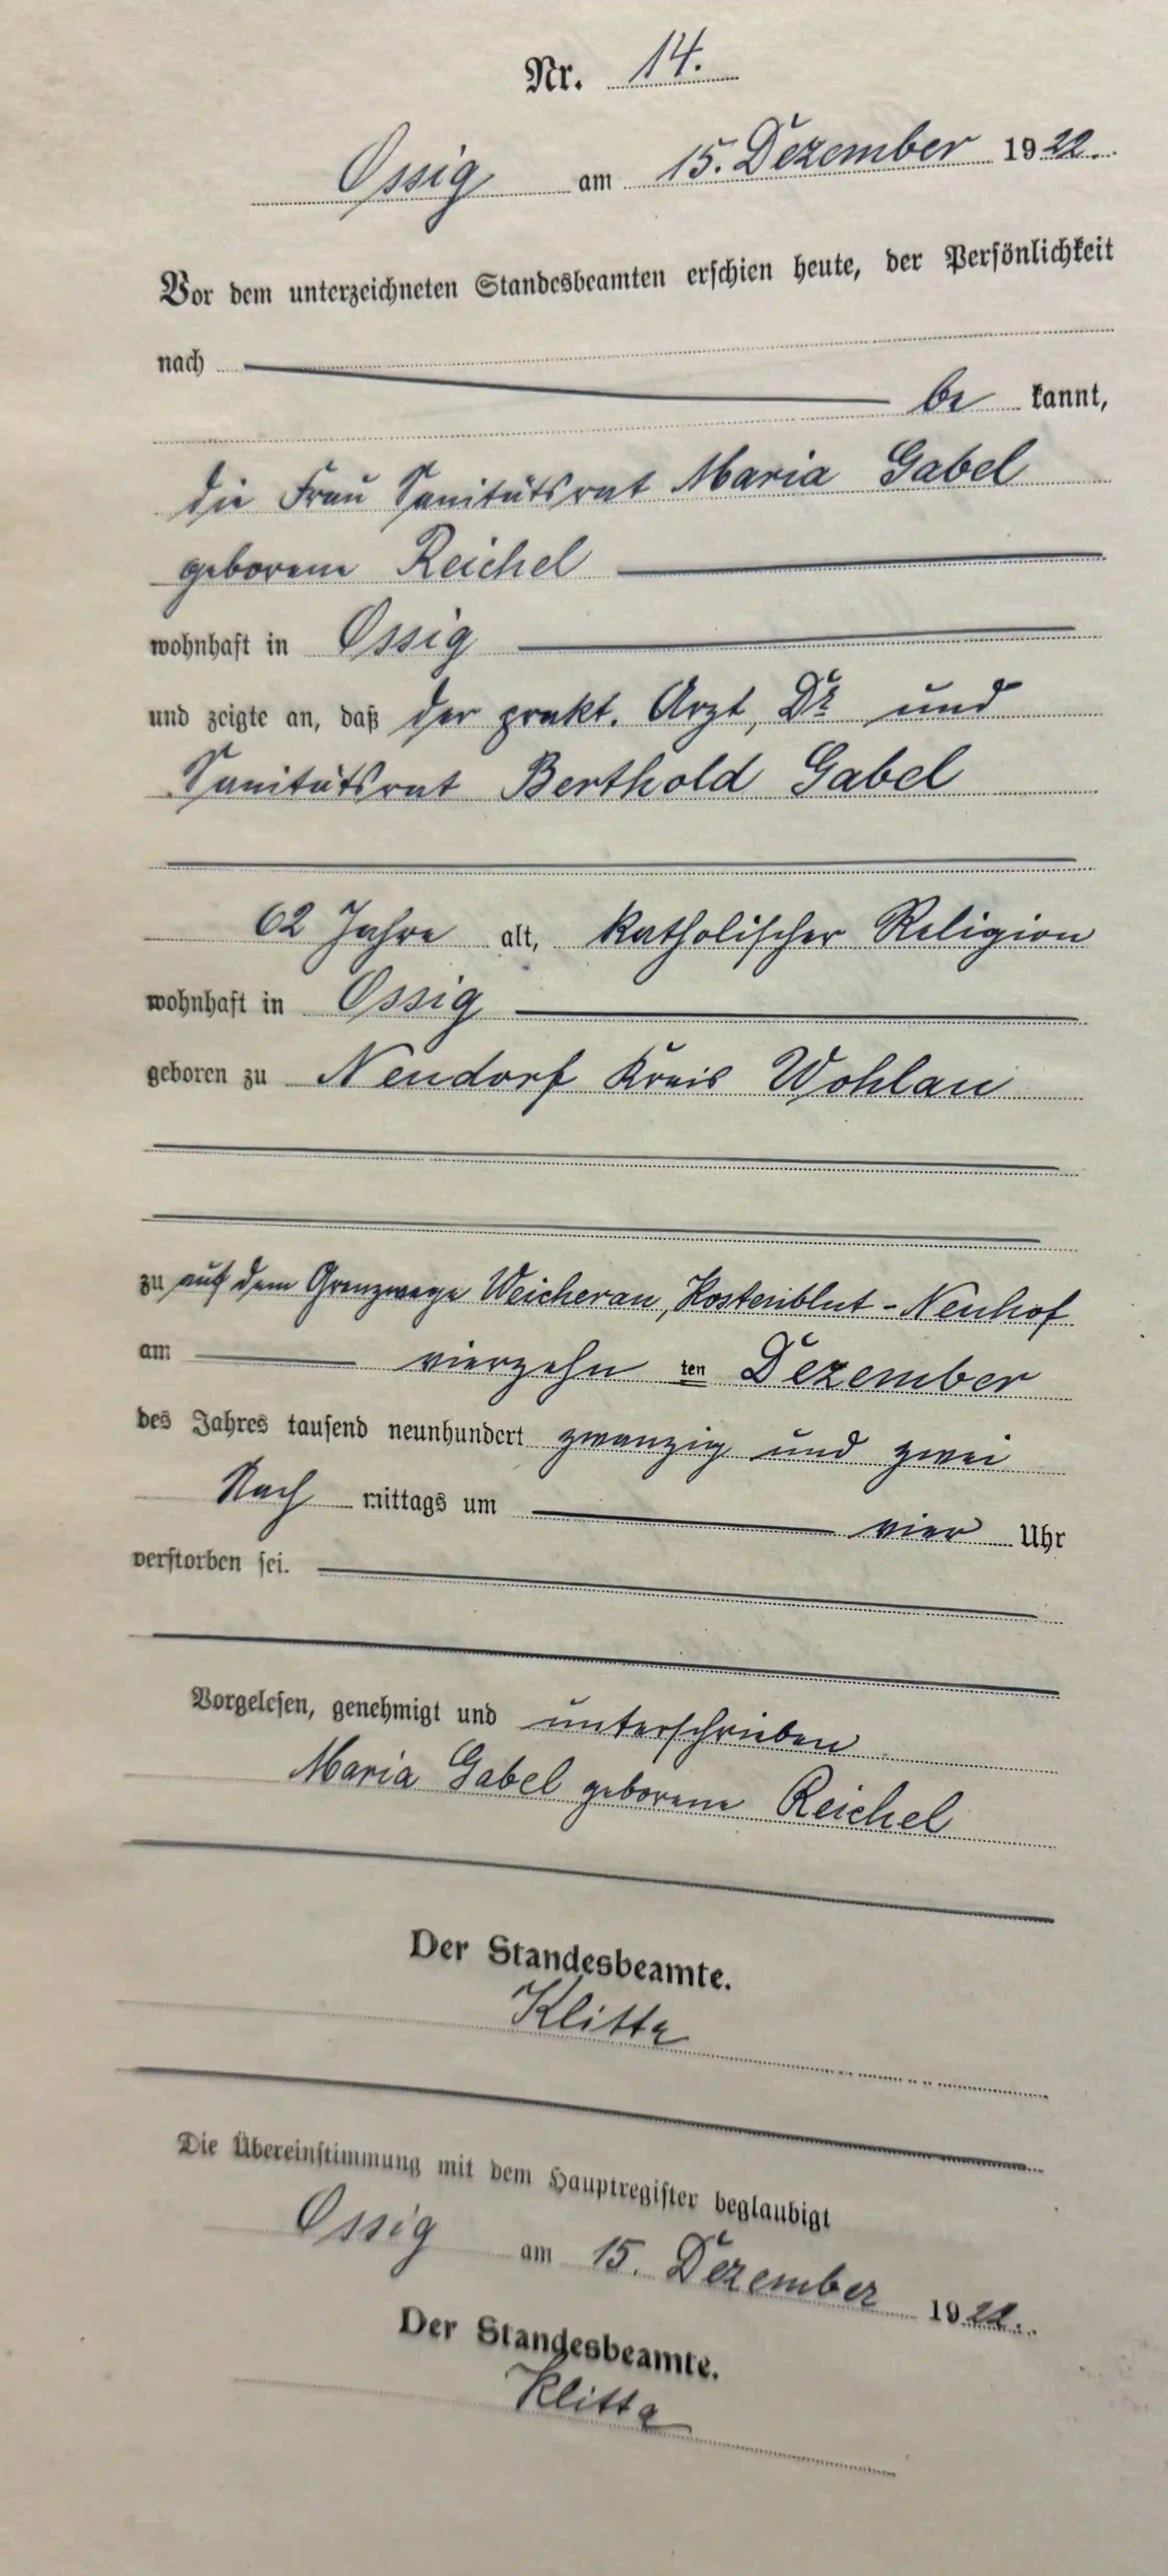 Nr. 14.
Ossig am 15. Dezember 1922.
Vor dem unterzeichneten Standesbeamten erschien heute, der Persönlichkeit
nach
be kannt,
die Frau Sanitätsrat Maria Gabel
geborene Reichel
wohnhaft in Ossig
und zeigte an, daß der prakt. Arzt, Dr und
Sanitätsrat Berthold Gabel
62 Jahre alt, katholischer Religion
wohnhaft in Ossig
geboren zu Neudorf Kreis Wohlau
zu auf dem Grenzwege Weicherau, Kostenblut - Neuhof
am vierzehn ten Dezember
des Jahres tausend neunhundert zwanzig und zwei
Nach mittags um vier Uhr
verstorben sei.
Vorgelesen, genehmigt und unterschrieben
Maria Gabel geborene Reichel
Der Standesbeamte.
Klitta
Die Übereinstimmung mit dem Hauptregister beglaubigt
Ossig am 15. Dezember 1922.
Der Standesbeamte.
Klitta